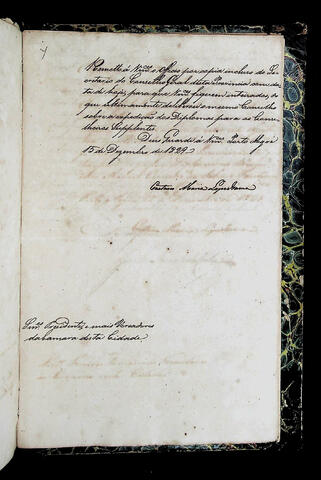 Remetto á Vmces o Officio por copia incluso do Se-
cretario do Conselho Geral desta Provincia com da-
ta de hoje, para que Vmces fiquem inteirados, do
que ultimamente deliberou o mesmo Conselho
sobre a expedição dos Diplomas para os Conse-
lheiros Supplentes.
Deos Guarde á Vmces Porto Alegre
15 de Dezembro de 1829.
Caetano Maria Lopes Gama
Snres Presidente, e mais Vereadores
da Camara desta Cidade.